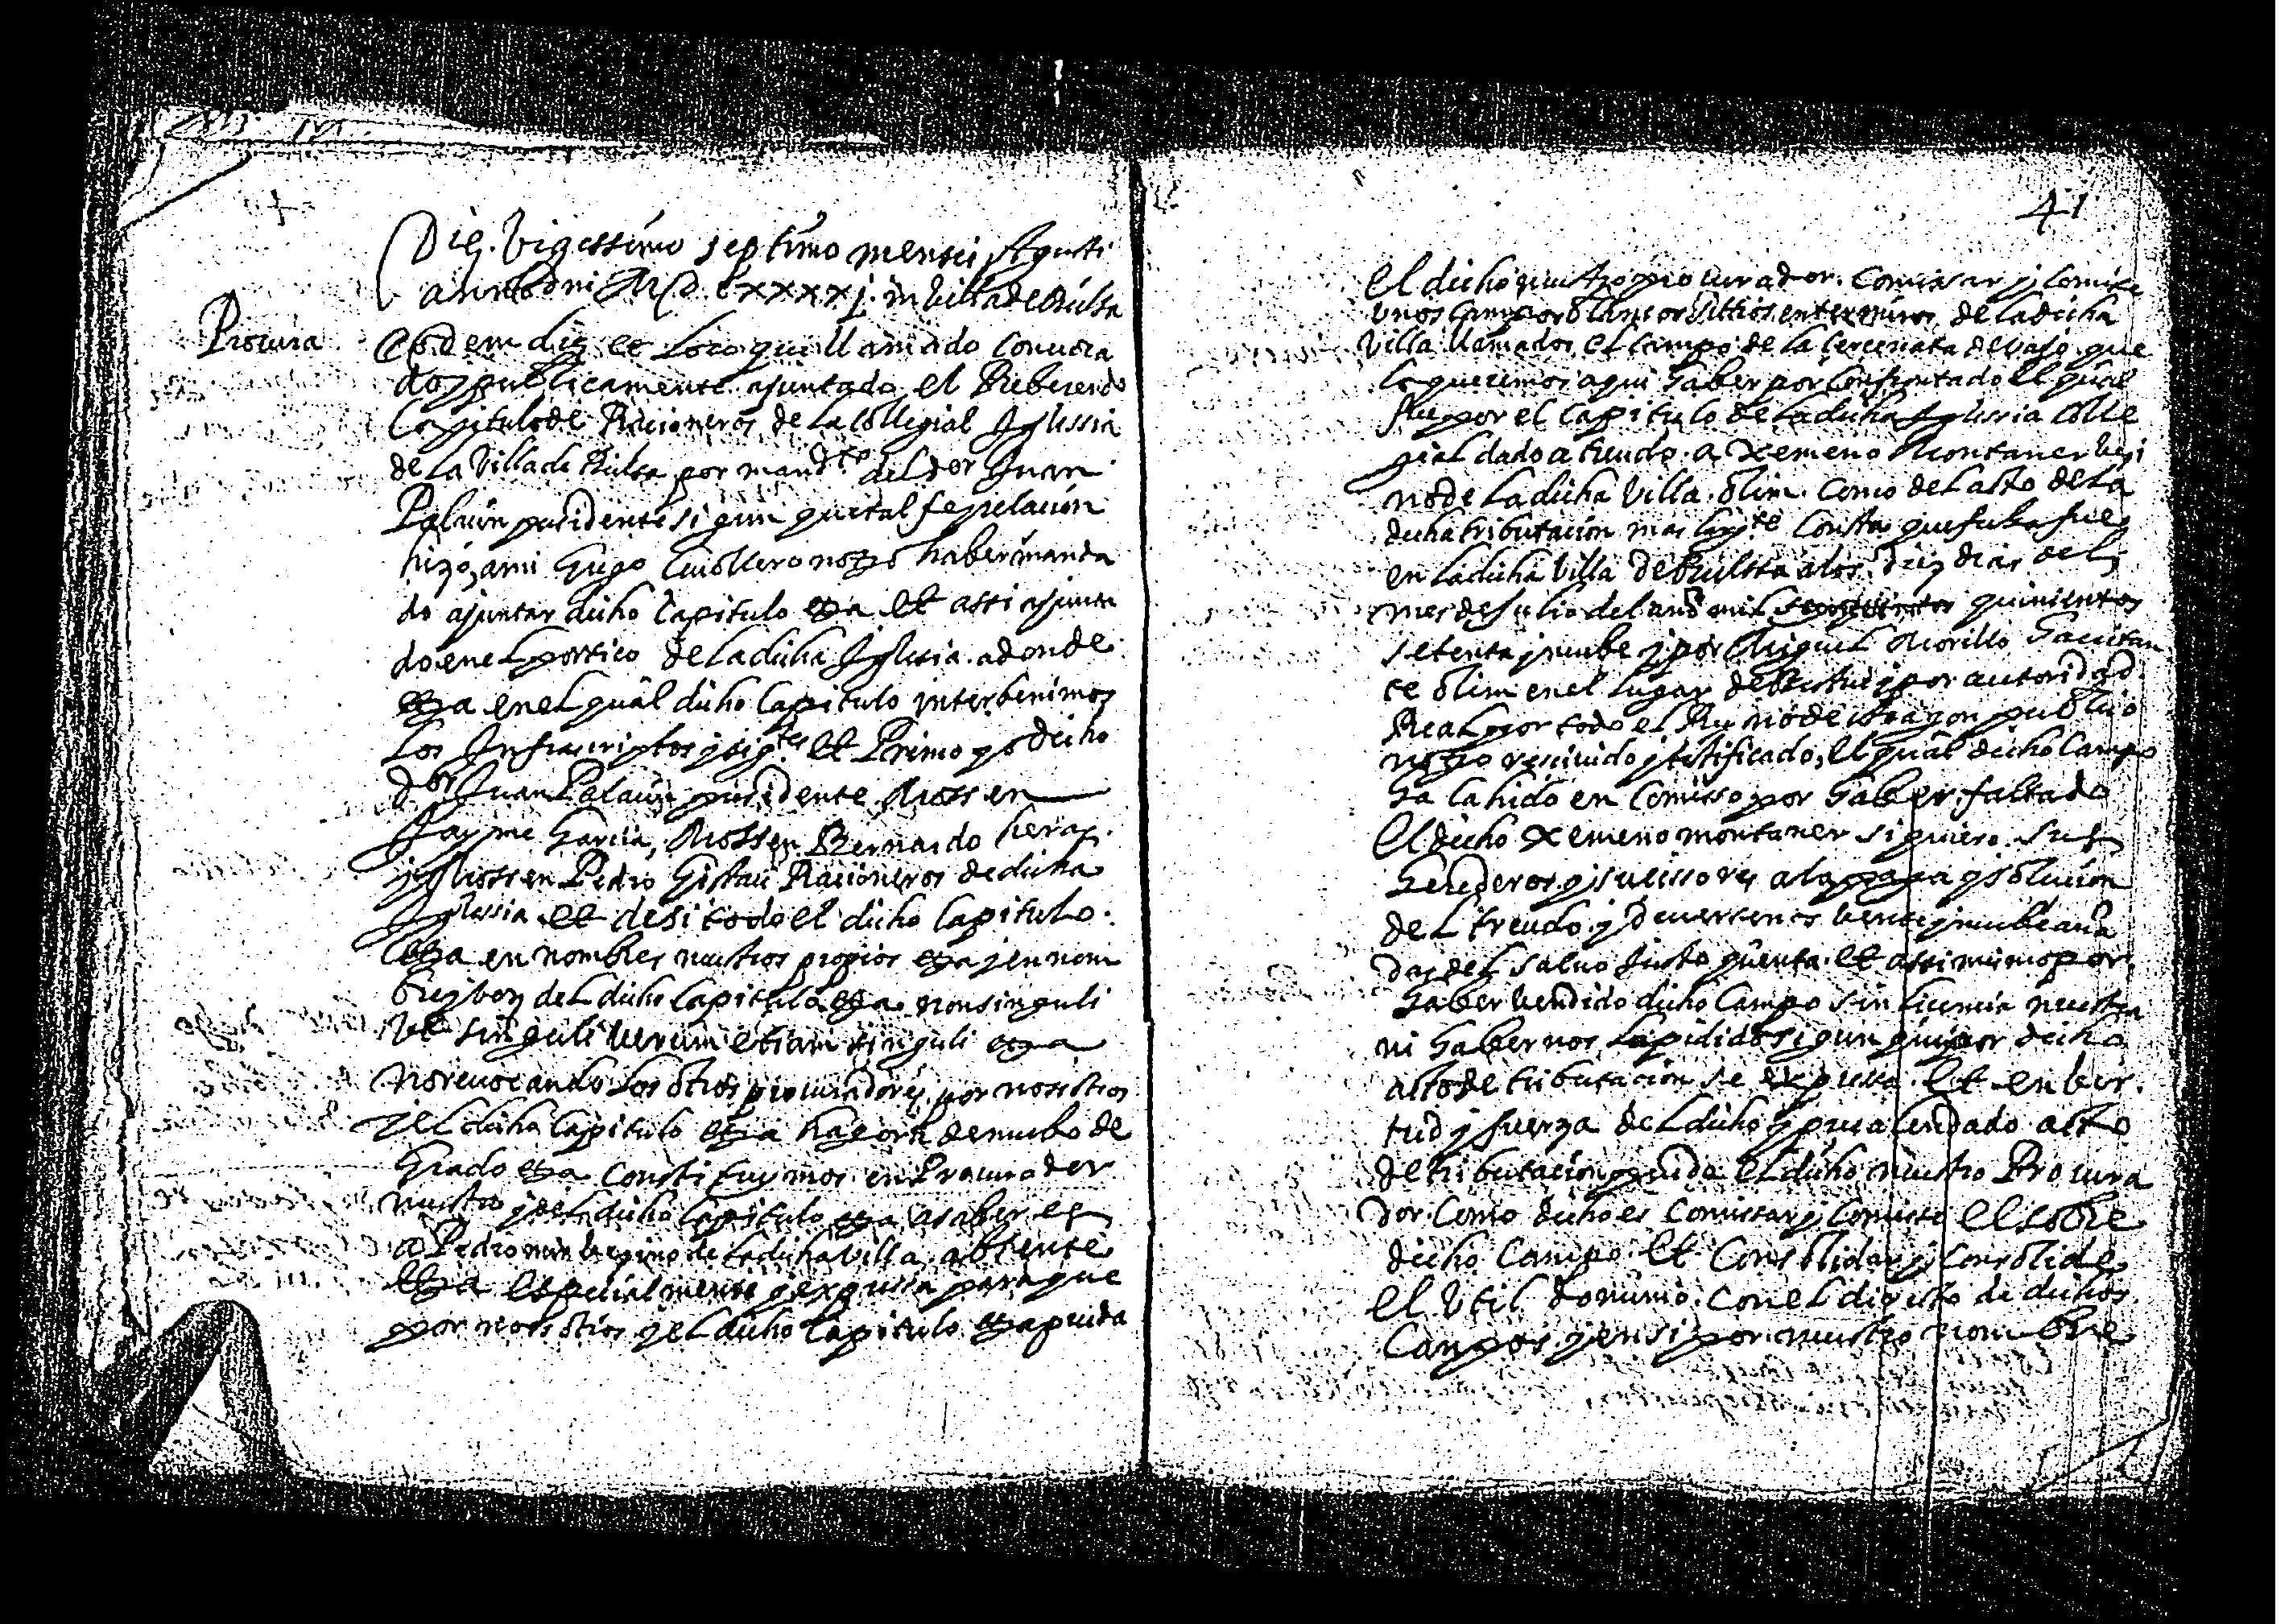 +
Die Vigessimo septimo mensis Agusti
anno dni M D C xxxx j. in Villa de Buesa
Procura
Eodem die et Loco que llamado Convoca
do y publicamente ajuntado el Reberendo
Capitulo de Racioneros de la Collegial Iglessia
de la Villa de por mand.to del dor Juan
Palacin presidente sigun que tal fe y relacion
hizo, a mi notro haber manda
do ajuntar dicho Capitulo etza et assi ajunta
do en el portico de la dicha Iglesia adonde
etza en el qual dicho Capitulo interbenimos
Los Infrascriptos y sig.tes et Primo yo dicho
dor Juan Palacin presidente Mossen
Jayme Garcia, Mossen Bernardo heras
y Mossen Pedro Gistau Racioneros de dicha
Iglessia et de si todo el dicho Capitulo
etza en nombres nuestros propios etza y en nom
bre y boz del dicho Capitulo etza non singuli
ut singuli verum etiam singuli etza
no revocando los otros procuradores por nosotros
y el dicho Capitulo etza hagora de nuebo de
Grado etza Constituymos en Procurador
nuestro y del dicho Capitulo etza asaber es
a Pedro mur bezino de la dicha Villa absente
etza especialmente y expressa para que
por nosotros y el dicho Capitulo etza pueda
41
el dicho nuestro procurador. Comissar y Comisse
unos Campos blancos Sittios en terminos de la dicha
Villa llamados el Campo de la debajo que
lo queremos aqui haber por Confrontado el qual
fue por el Capitulo de la dicha Iglessia Colle
gial dado a treudo a Xemeno Montaner bezi
no de la dicha Villa olim. Como del acto de la
dicha tributacion mas larg.te Consta que fecha fue
en la dicha Villa de a los diez dias del
mes de Julio del año mil quinientos
setenta y nuebe y por Miguel Morillo habitan
te olim en el lugar de y por autoridad
Real por todo el Reyno de Aragon publico
notro recivido y testificado, el qual dicho Campo
ha cahido en Comisso por haber faltado
el dicho Xemeno montaner siquiere sus
herederos y sucessores a la paga y solucion
del treudo y de veinte y nuebe aña
das del salvo justo quenta et assi mismo por
haber bendido dicho Campo sin licencia nuestra
ni habernos la pidido sigun que por dicho
acto de tributacion se expressa. et en ber
tud y fuerza del dicho y precalendado acto
de tributacion pueda el dicho nuestro Procura
dor Como dicho es Comissar y Comisse el sobre
dicho Campo et Consolidar y Consolide
el Util dominio. Con el directo de dichos
Campos y en si por nuestro nombre